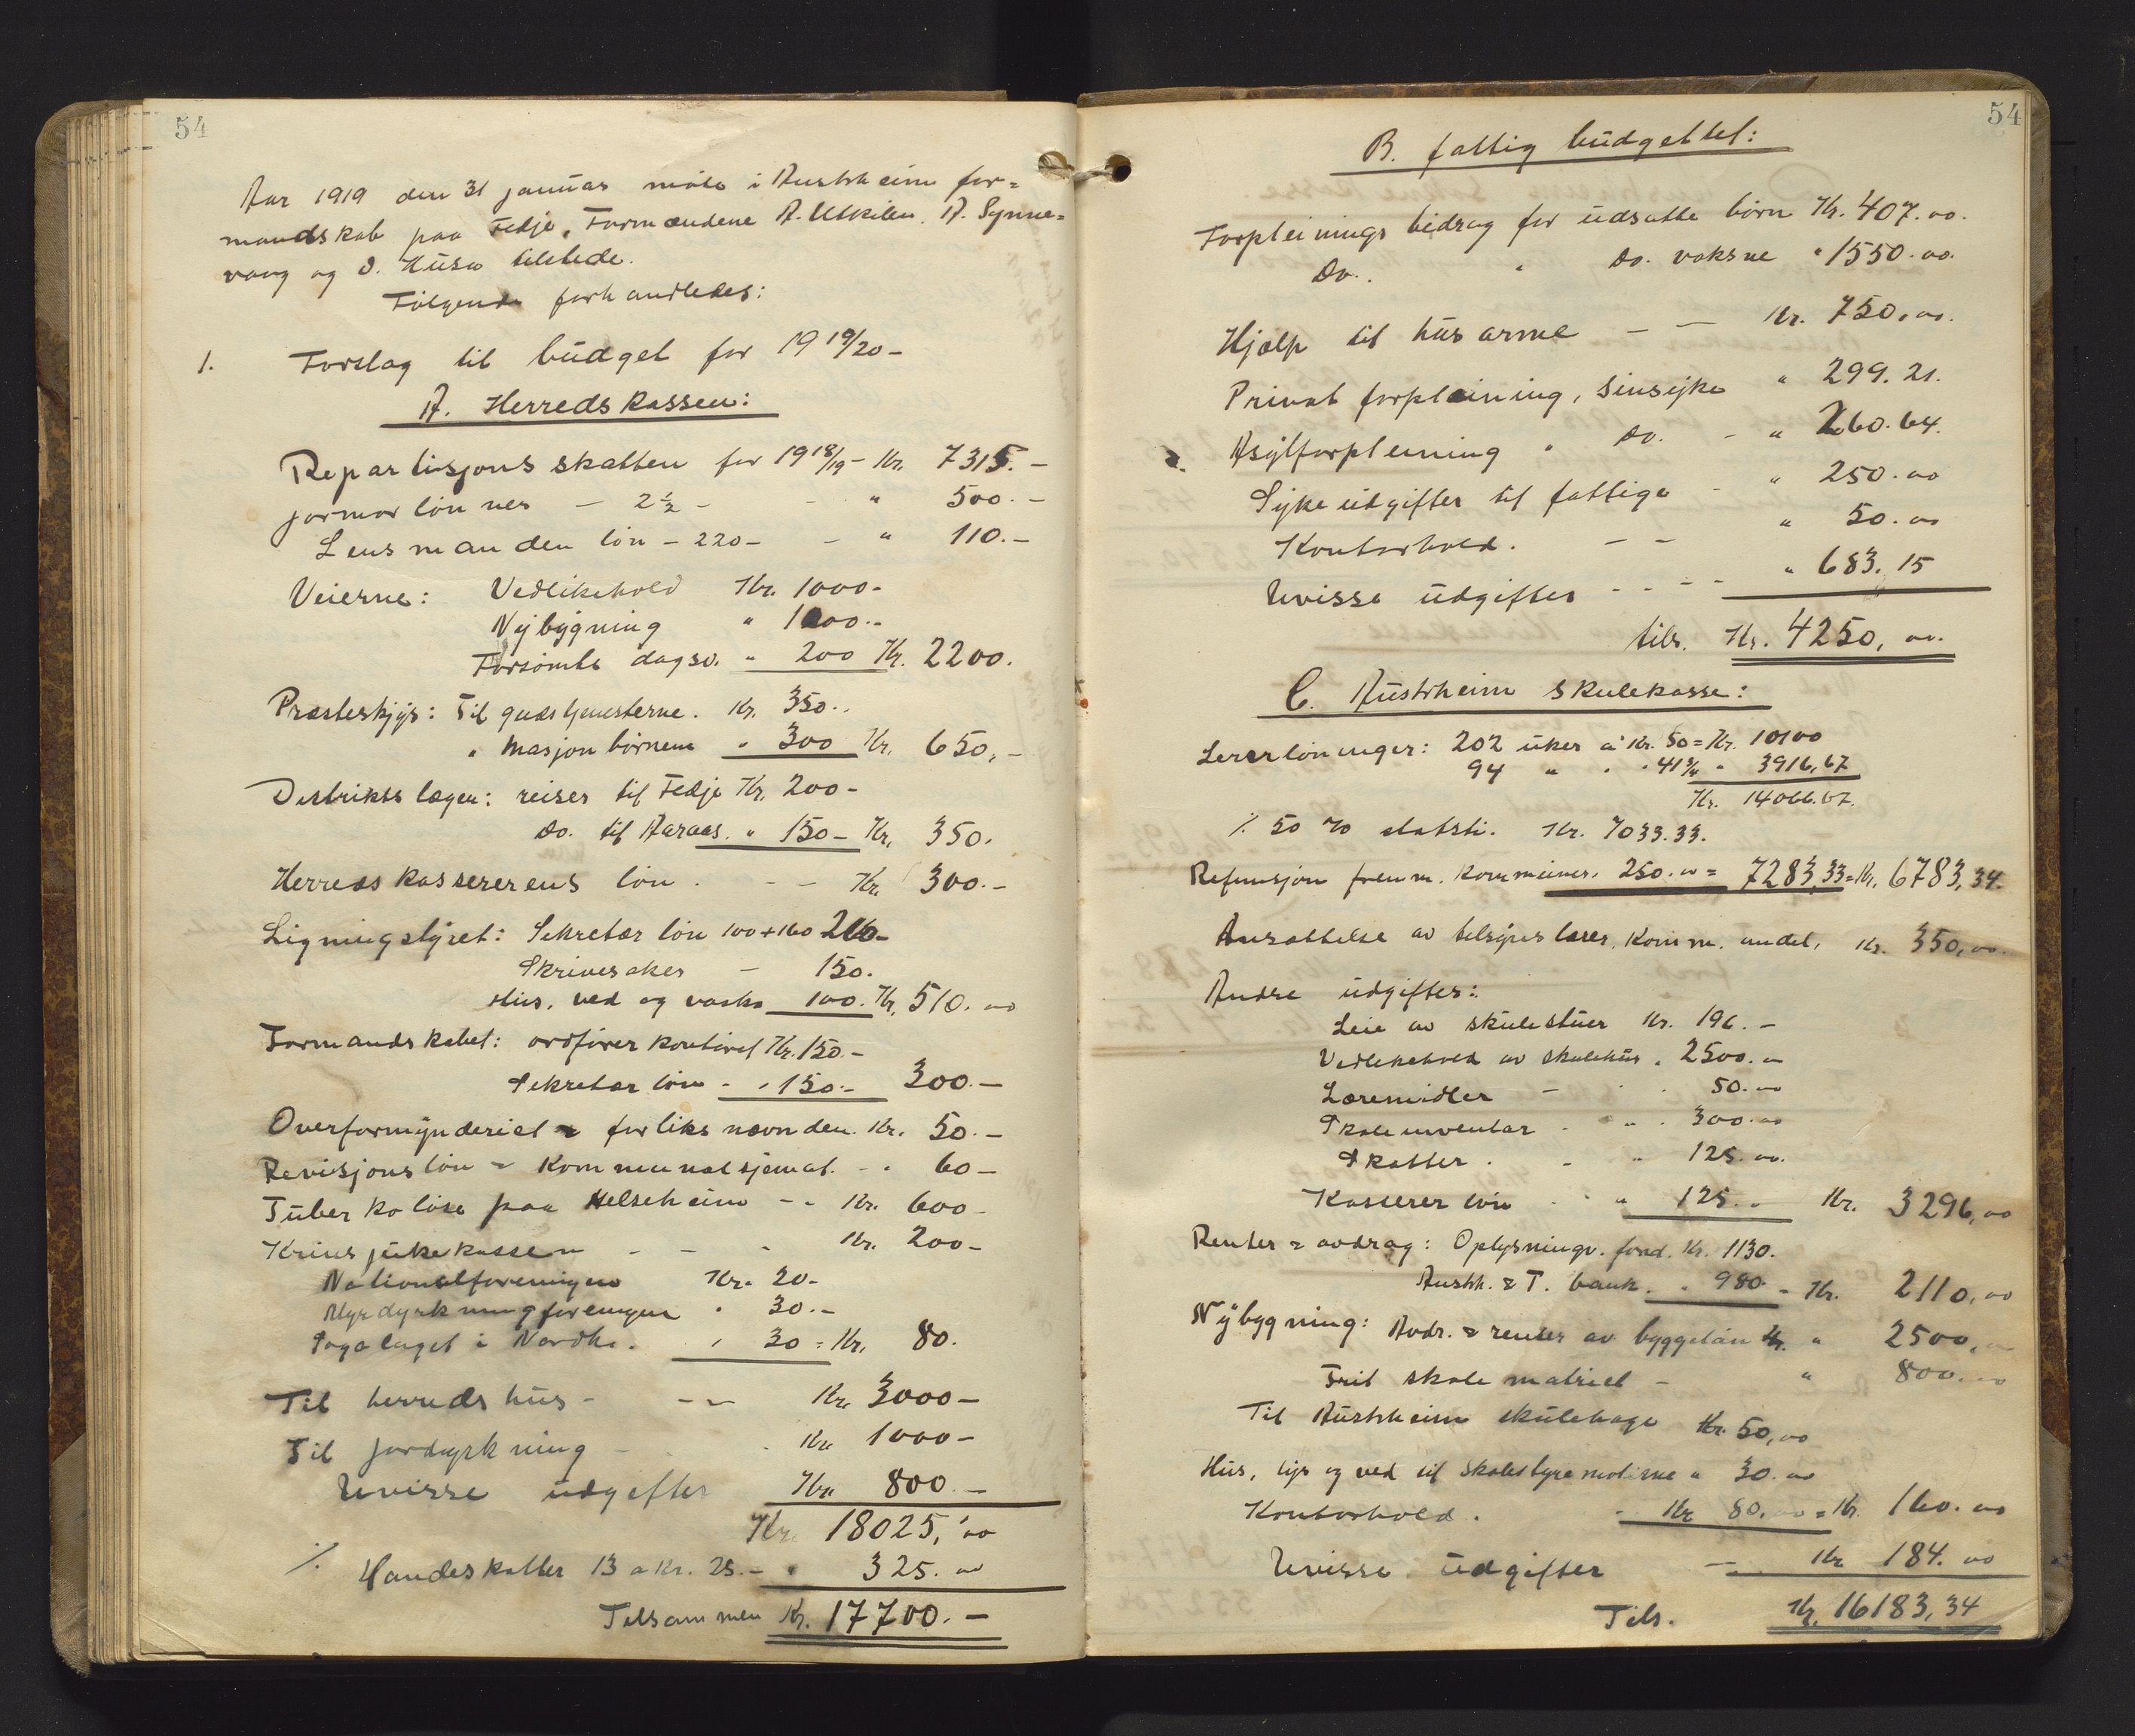 54
Aar 1919 den 31 januar møte i Austrheim for=
mandskab paa Fedje. Formændene A. Utkilen. A. Synne=
vaag og O. Husa tilstede.
Følgende forhandledes:
1. Forslag til budget for 19 19/20 -
A. Herredskassen:
Repartisjonsskatten for 19 18/19 - Kr. 7315. -
jormor lønnes - 2½ - - " 500. -
Lensmanden løn - 220 - - " 110. -
Veierne: Vedlikehold Kr. 1000 -
Nybygning " 1000. -
Forsømte dagsv. " 200 Kr. 2200.
Præsteskjys: Til gudstjenesterne. Kr. 350..
" masjon børnene " 300 Kr. 650, -
Distriktslægen: reiser til Fedje Kr. 200 -
Do. til Aaraas. " 150 - Kr. 350.
Herredskassererens løn. - - Kr. 300. -
Ligningstyret: Sekretær løn 100 + 160 260 -
Skrivesaker - 150.
Hus, ved og vask 100. Kr. 510. oo
Formandskabet: ordfører kontoret Kr. 150. -
Sekretær løn - " 150. - 300. -
Overformynderiet & forliksnævnden. Kr. 50. -
Revisjonsløn & Kommunalsjemat. - " 60 -
Tuberkoløse paa Helseheim - - Kr. 600 -
Krinsjukekassen - - - Kr. 200 -
Nationalforeningen Kr. 20 -
Myrdyrkningforeningen " 30. -
Sogelaget i Nordh. " 30 = Kr. 80.
Til herredshus - - - Kr. 3000 -
Til jordyrkning - - Kr. 1000 -
Uvisse udgifter Kr. 800. -
Kr. 18025, oo
٪ Handeskatter 13 a Kr. 25. - " 325. oo
Tilsammen Kr. 17700. -
54
B. fattig budgettet:
Forpleinings bidrag for udsatte børn Kr. 407. oo.
Do. " Do. voksne " 1550. oo.
Hjælp til husarme - - Kr. 750, oo.
Privat forpleining, sinsyke " 299. 21.
2. Asylforpleining " Do. - " 260. 64.
Sykeudgifter til fattige - " 250. oo
Kontorhold. - - " 50. oo
Uvisse udgifter - - - - " 683. 15
tils. Kr. 4250, oo.
C. Austrheim skulekasse:
Lærerløninger: 202 uker a Kr. 50 = Kr. 10100
94 " " " 41¾ " 3916,67
Kr. 14066.67.
٪ 50 % statsti. Kr. 7033. 33.
Refunsjon frem. kommuner. 250. oo = 7283,33 = Kr. 6783, 34.
Ansættelse av tilsynslærer, komm. andel, Kr. 350, oo.
Andre udgifter:
Leie av skulestuer Kr. 196. -
Vedlikehold av skulehus " 2500. oo
Læremidler - " " 50. oo
Skoleinventar - " " 300. oo
Skatter. - " 125. oo.
Kasserer løn - " " 125. " Kr. 3296, oo
Renter & avdrag: Oplysningv. fond. Kr. 1130.
Austrh. & T. bank. " 980 - Kr. 2110, oo
Nybygning: Avdr. & renter av byggelån Kr. " 2500,
Frit skole matriel - " 800. oo
Til Austrheim skulehage Kr. 50, oo
Hus, lys og ved til skolestyremøterne " 30. oo
Kontorhold. - Kr 80, oo = Kr. 160. oo
Uvisse udgifter - Kr 184. oo
Tils. Kr. 16183, 34